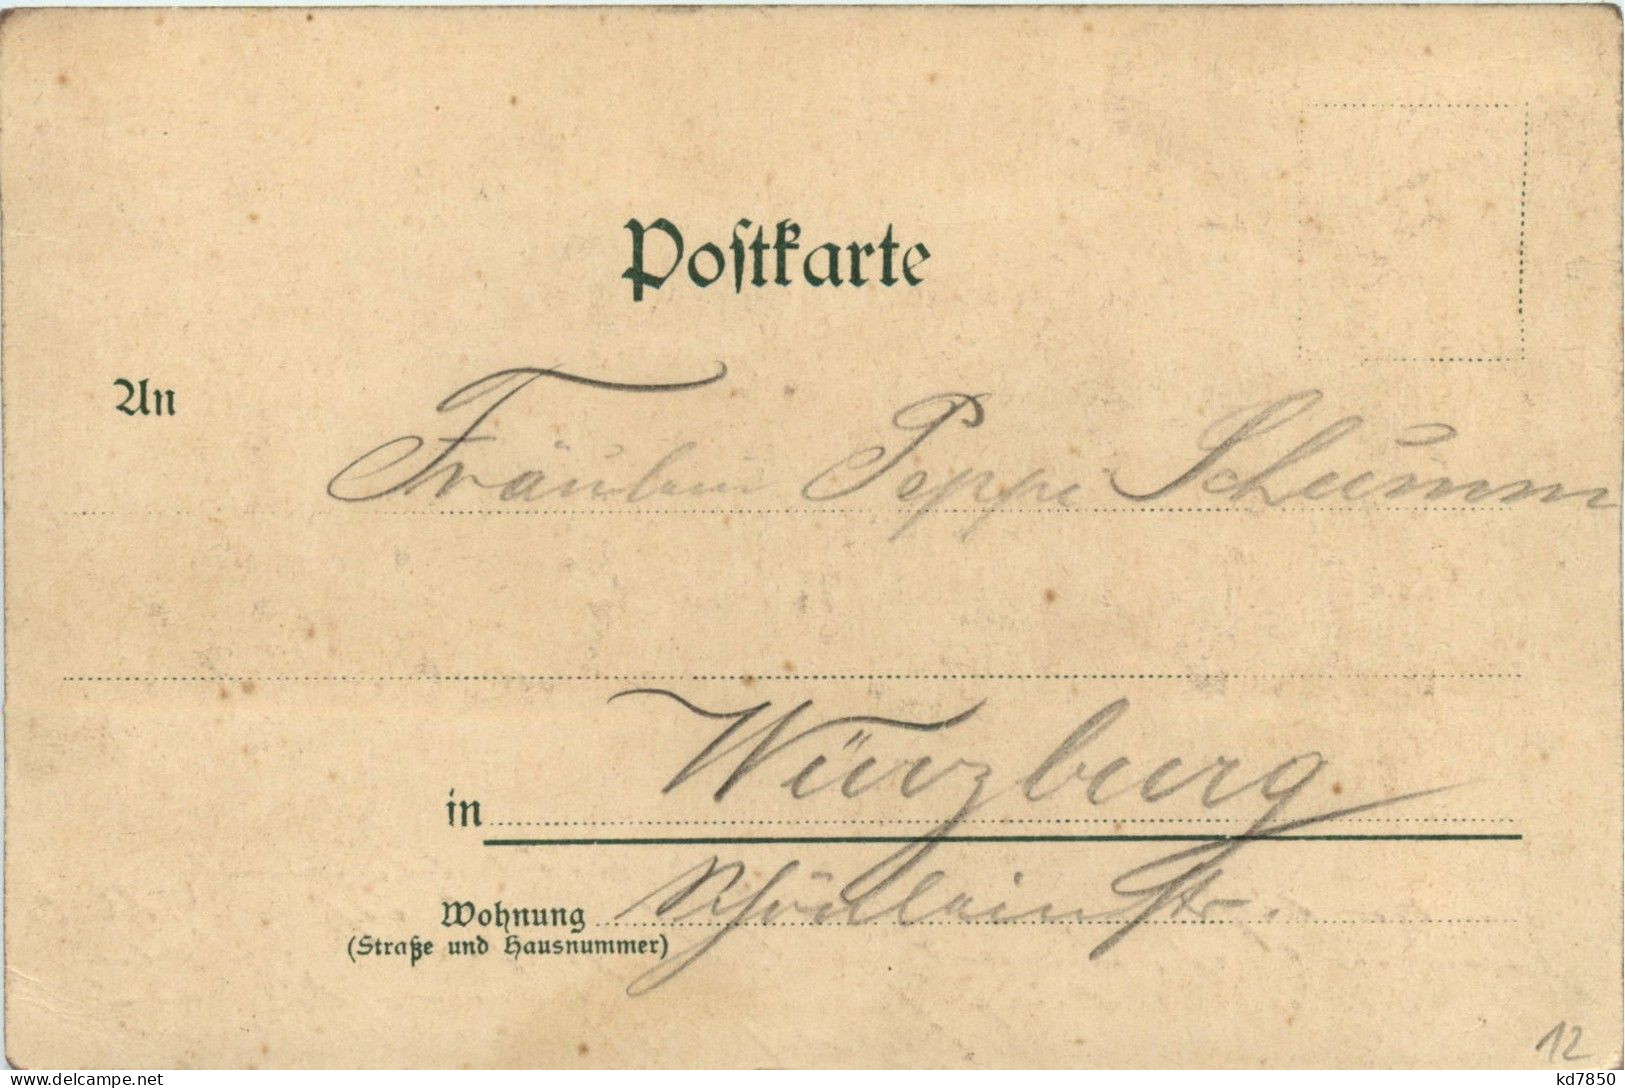 Postkarte
An Fräulein Peppi Schumm
in Würzburg
Wohnung Schönleinstr.
(Straße und Hausnummer)
12
delcampe.net
kd7850